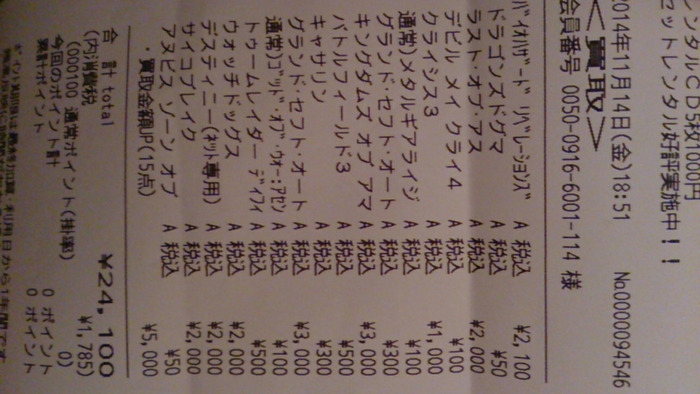 ンタルCD5枚1000円
セットレンタル好評実施中！！
2014年11月14日(金)18:51 No.0000094546
＜買取＞
会員番号 0050-0916-6001-114 様
ﾊﾞｲｵﾊｻﾞｰﾄﾞ ﾘﾍﾞﾚｰｼｮﾝｽﾞ A 税込 ¥2,100
ドラゴンズドグマ A 税込 ¥50
ラスト・オブ・アス A 税込 ¥2,000
デビル メイ クライ4 A 税込 ¥100
クライシス3 A 税込 ¥1,000
通常)メタルギアライジ A 税込 ¥100
グランド・セフト・オート A 税込 ¥300
キングダムズ オブ アマ A 税込 ¥3,000
バトルフィールド3 A 税込 ¥500
キャサリン A 税込 ¥300
グランド・セフト・オート A 税込 ¥3,000
通常)ｺﾞｯﾄﾞ・ｵﾌﾞ・ｳｫｰ:ｱｾﾝ A 税込 ¥100
トゥームレイダー ﾃﾞｨﾌｨ A 税込 ¥500
ウォッチドッグス A 税込 ¥2,000
デスティニー(ﾈｯﾄ専用) A 税込 ¥2,000
サイコブレイク A 税込 ¥2,000
アヌビス ゾーン オブ A 税込 ¥50
・買取金額UP(15点) ¥5,000
合 計 total ¥24,100
(内消費税 ¥1,785)
(000100 通常ポイント(掛率) 0)
今回のポイント計 0 ポイント
累計ポイント 0 ポイント
利用日から1年間です